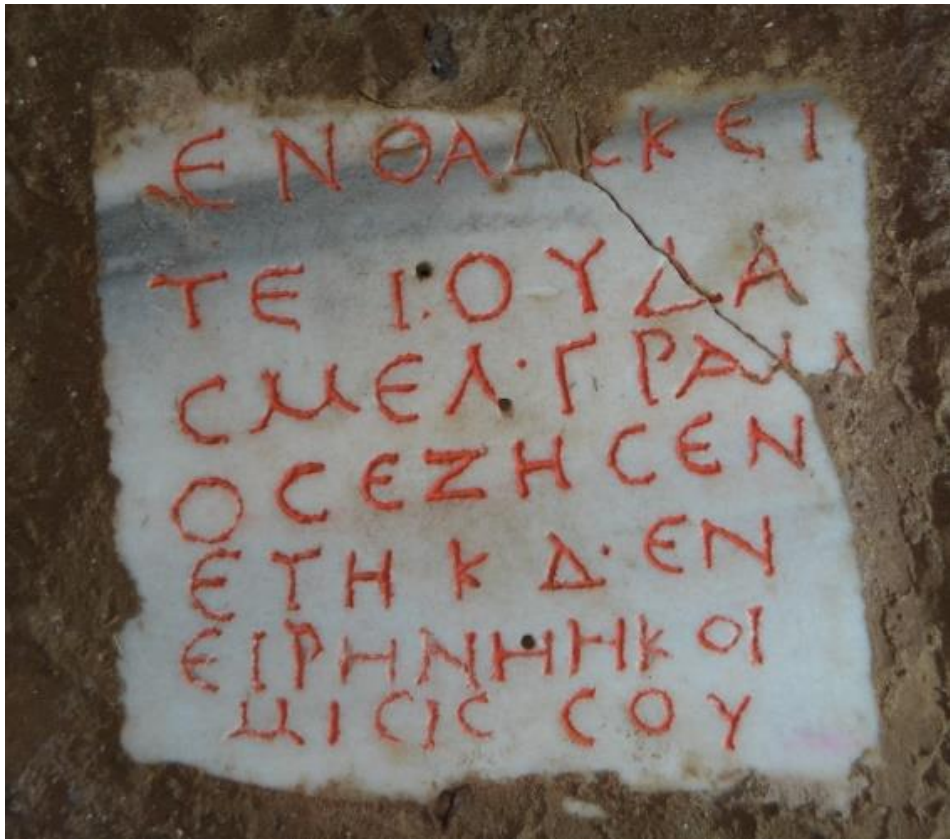 ΕΝΘΑΔΕ ΚΕΙ
ΤΕ ΙΟΥΔΑ
Ϲ ΜΕΛ·ΓΡΑΜΜ
ΟϹ ΕΖΗϹΕΝ
ΕΤΗ ΚΔ·ΕΝ
ΕΙΡΗΝΗ Η ΚΟΙ
ΜΙϹΙϹ ϹΟΥ